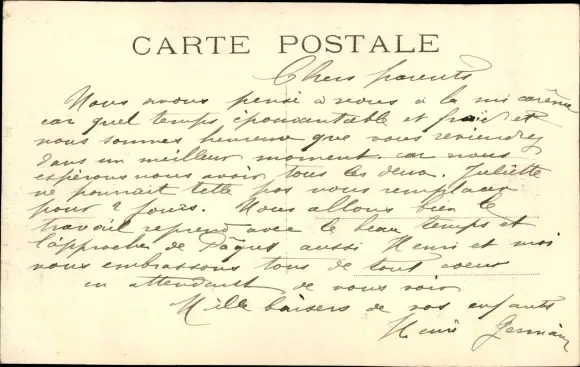 CARTE POSTALE
Chers parents
Nous avons pensé à vous à la mi carême
car quel temps épouvantable et froid et
nous sommes heureux que vous reviendrez
dans un meilleur moment car nous
espérons nous avoir tous les deux. Juliette
ne pourrait telle pas vous remplacer
pour 2 jours. Nous allons bien le
travail reprend avec le beau temps et
l'approche de Pâques aussi Henri et moi
vous embrassons tous de tout coeur
en attendant de vous voir
Mille baisers de vos enfants
Henri Germain